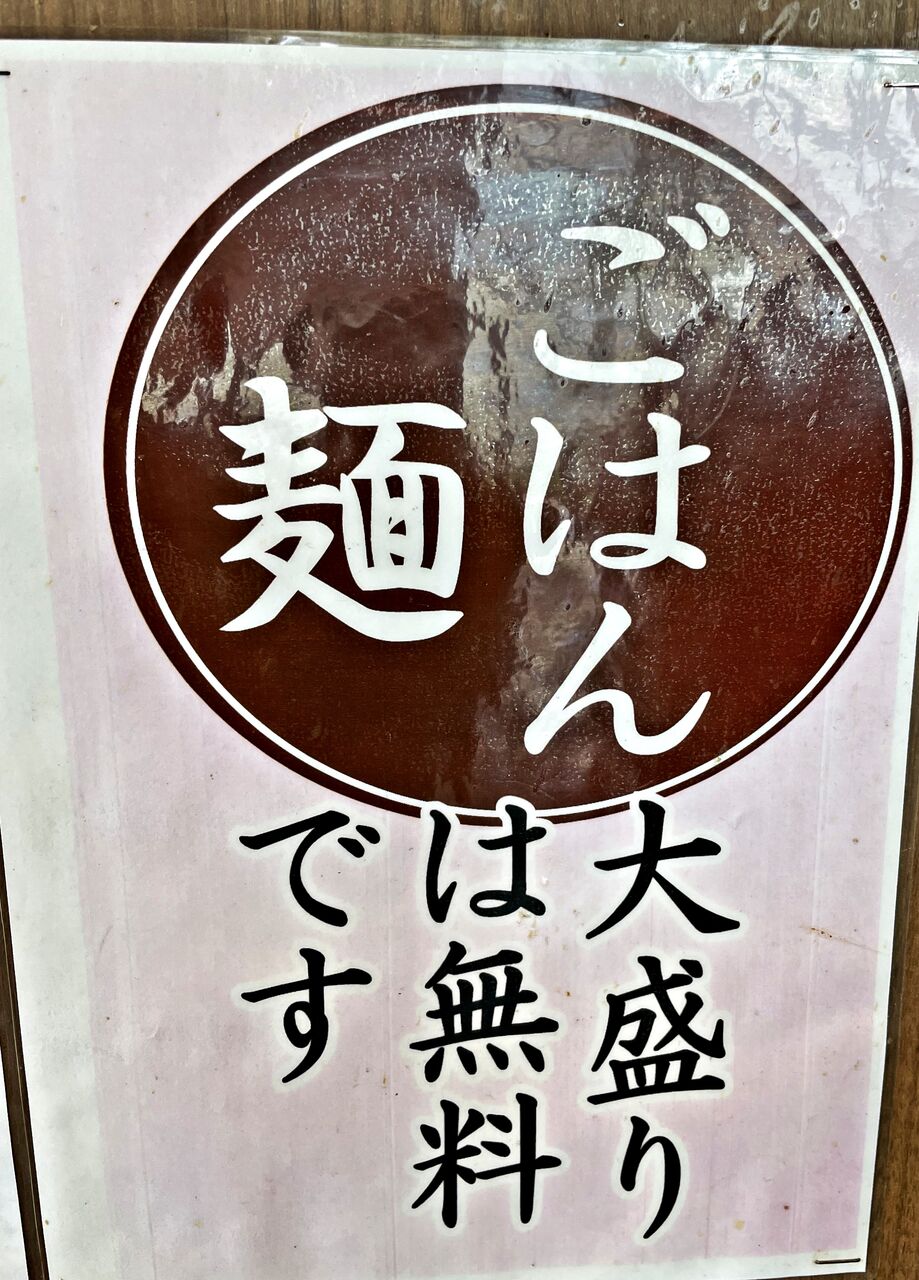 ごはん
麺
大盛り
は無料
です